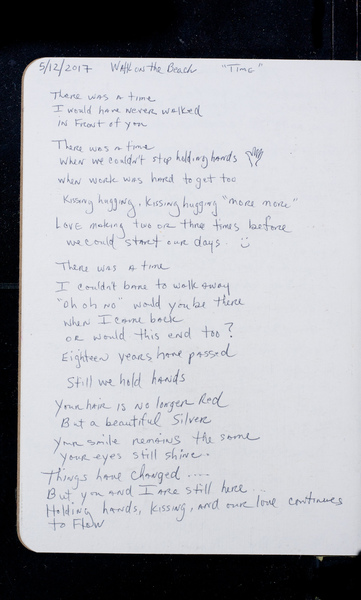 5/12/2017 Walk on the Beach "Time"
There was a time
I would have never walked
in Front of you
There was a time
when we couldn't stop holding hands
when work was hard to get too
Kissing hugging, kissing hugging "more more"
Love making two or three times before
we could start our days.
There was a time
I couldn't bare to walk away
"Oh oh no" would you be there
when I came back
or would this end too?
Eighteen years have passed
Still we hold hands
Your hair is no longer Red
But a beautiful Silver
Your smile remains the same
Your eyes still shine.
Things have changed ....
But you and I are still here ...
Holding hands, kissing, and our love continues
to Flow